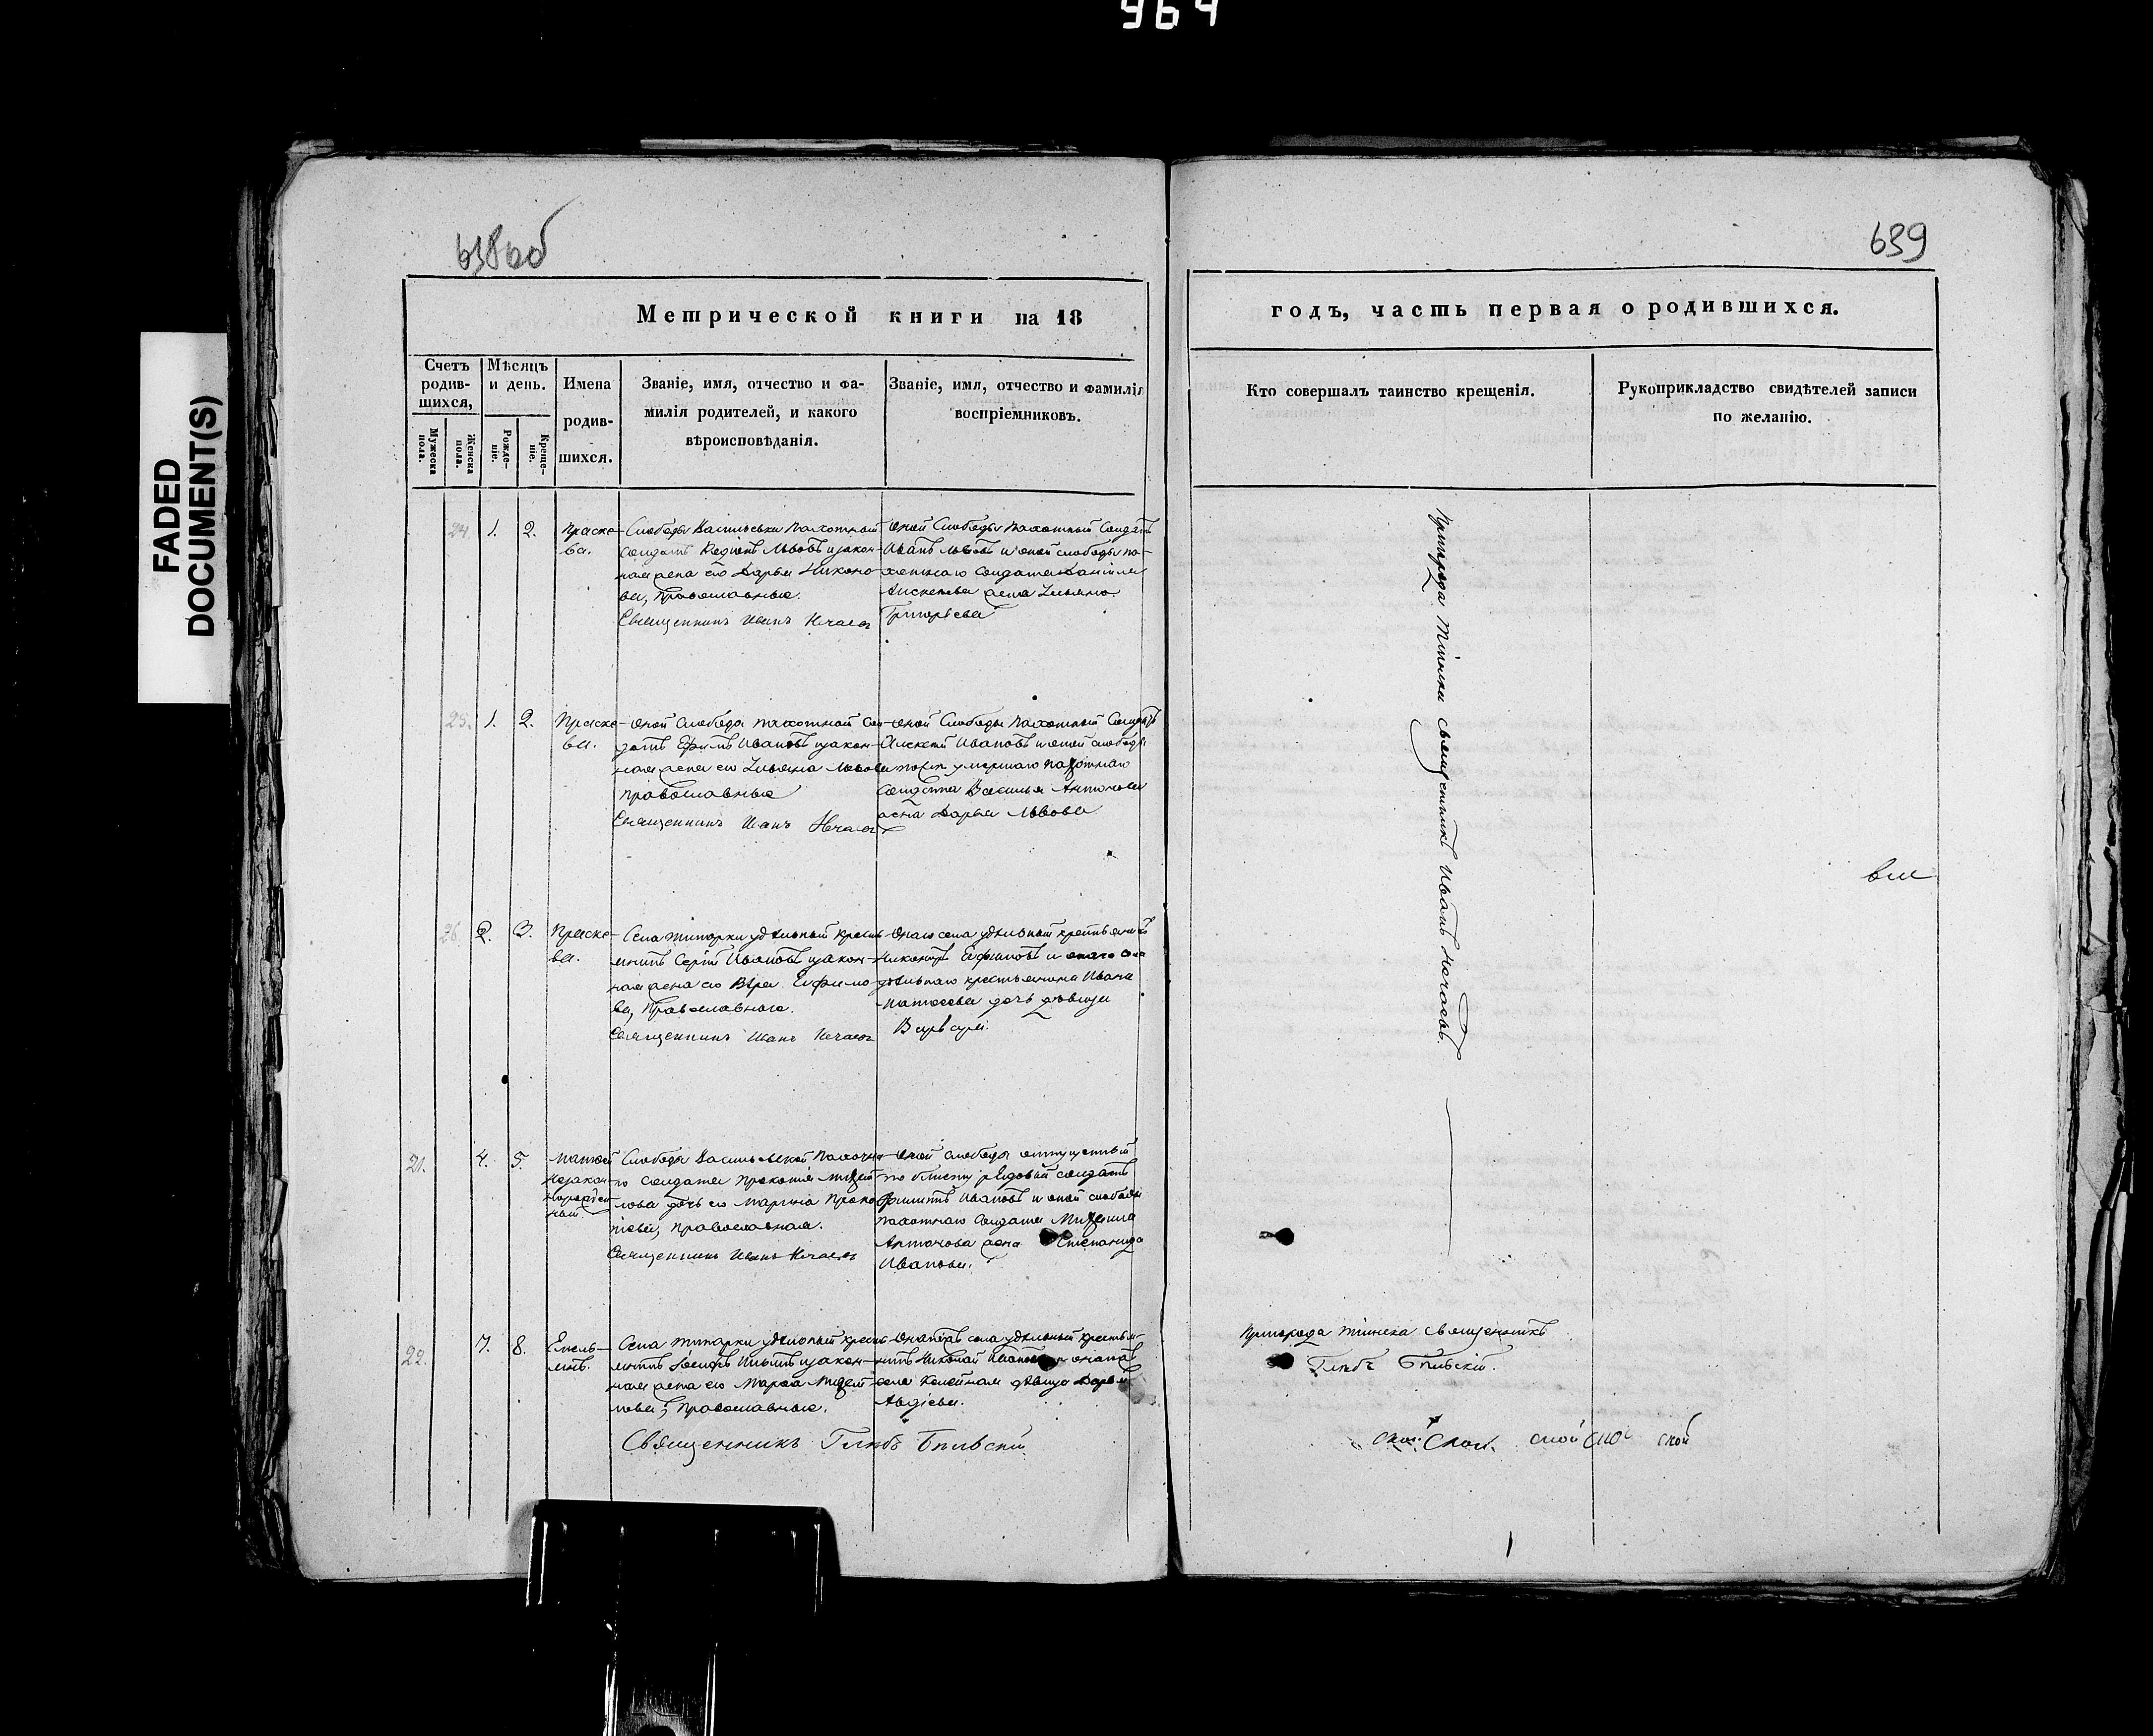 964
FADED
DOCUMENT(S)
638об
639
Метрической книги на 18
годъ, часть первая о родившихся.
Счетъ родив-шихся,
Мужеска пола.
Женска пола.
Мѣсяцъ и день.
Рожде-ніе.
Креще-ніе.
Имена родив-шихся.
Званіе, имя, отчество и фа-
милія родителей, и какого
вѣроисповѣданія.
Званіе, имя, отчество и фамилія
воспріемниковъ.
Кто совершалъ таинство крещенія.
Рукоприкладство свидѣтелей записи
по желанію.
24 1. 2.
Праске-
ва.
Слободы Васильевки пахотный
солдатъ Родіонъ Львовъ изакон-
ная жена его Дарья Никоно-
ва, православные.
Священникъ Иванъ Нечаевъ
Оной Слободы пахотный Солдатъ
Иванъ Львовъ и оной слободы па-
хотнаго солдата Даніила
жена Ульяна
Григорьева
25. 1. 2.
Праске-
ва.
Оной слободы пахотной Сол-
датъ Ефимъ Ивановъ изакон-
ная жена его Ульяна Львова
православные
Священникъ Иванъ Нечаевъ
Оной Слободы пахотный Солдатъ
Алексей Ивановъ и оной слободы
умершаго пахотнаго
Солдата Василья Антонова
жена Дарья Львова
26. 2. 3.
Праске-
ва.
Села удѣльный кресть-
янинъ Сергій Ивановъ изакон-
ная жена его Вѣра Ефимо-
ва, Православные.
Священникъ Иванъ Нечаевъ
Онаго села удѣльный крестьянинъ
Никоноръ Ефимовъ и онаго села
удѣльнаго крестьянина Ивана
Матвеева дочь дѣвица
Варвара.
21. 4. 5.
Матвей
незакон-
норожден-
ный.
Слободы Васильевской пахотна-
го солдата Прокопія Михай-
лова дочь его Марина Проко-
піева, православная.
Священникъ Иванъ Нечаевъ
Оной слободы отпущенный
по билету рядовый солдатъ
Филипъ Ивановъ и оной слободы
пахотнаго Солдата Михаила
Антонова жена Степанида
Иванова.
22. 7. 8.
Емель-
янъ.
Села удѣльный кресть-
янинъ Іосифъ Ильинъ изакон-
ная жена его Марѳа Михай-
лова, Православные.
Священникъ Глѣбъ Бѣльскій
села удѣльный крестья-
нинъ Николай Ивановъ
села келейная дѣвица Дарья
Авдіева.
Пригорода Тіинска священникъ Иванъ Нечаевъ.
Пригорода Тіинска священникъ
Глѣбъ Бѣльскій.
ской